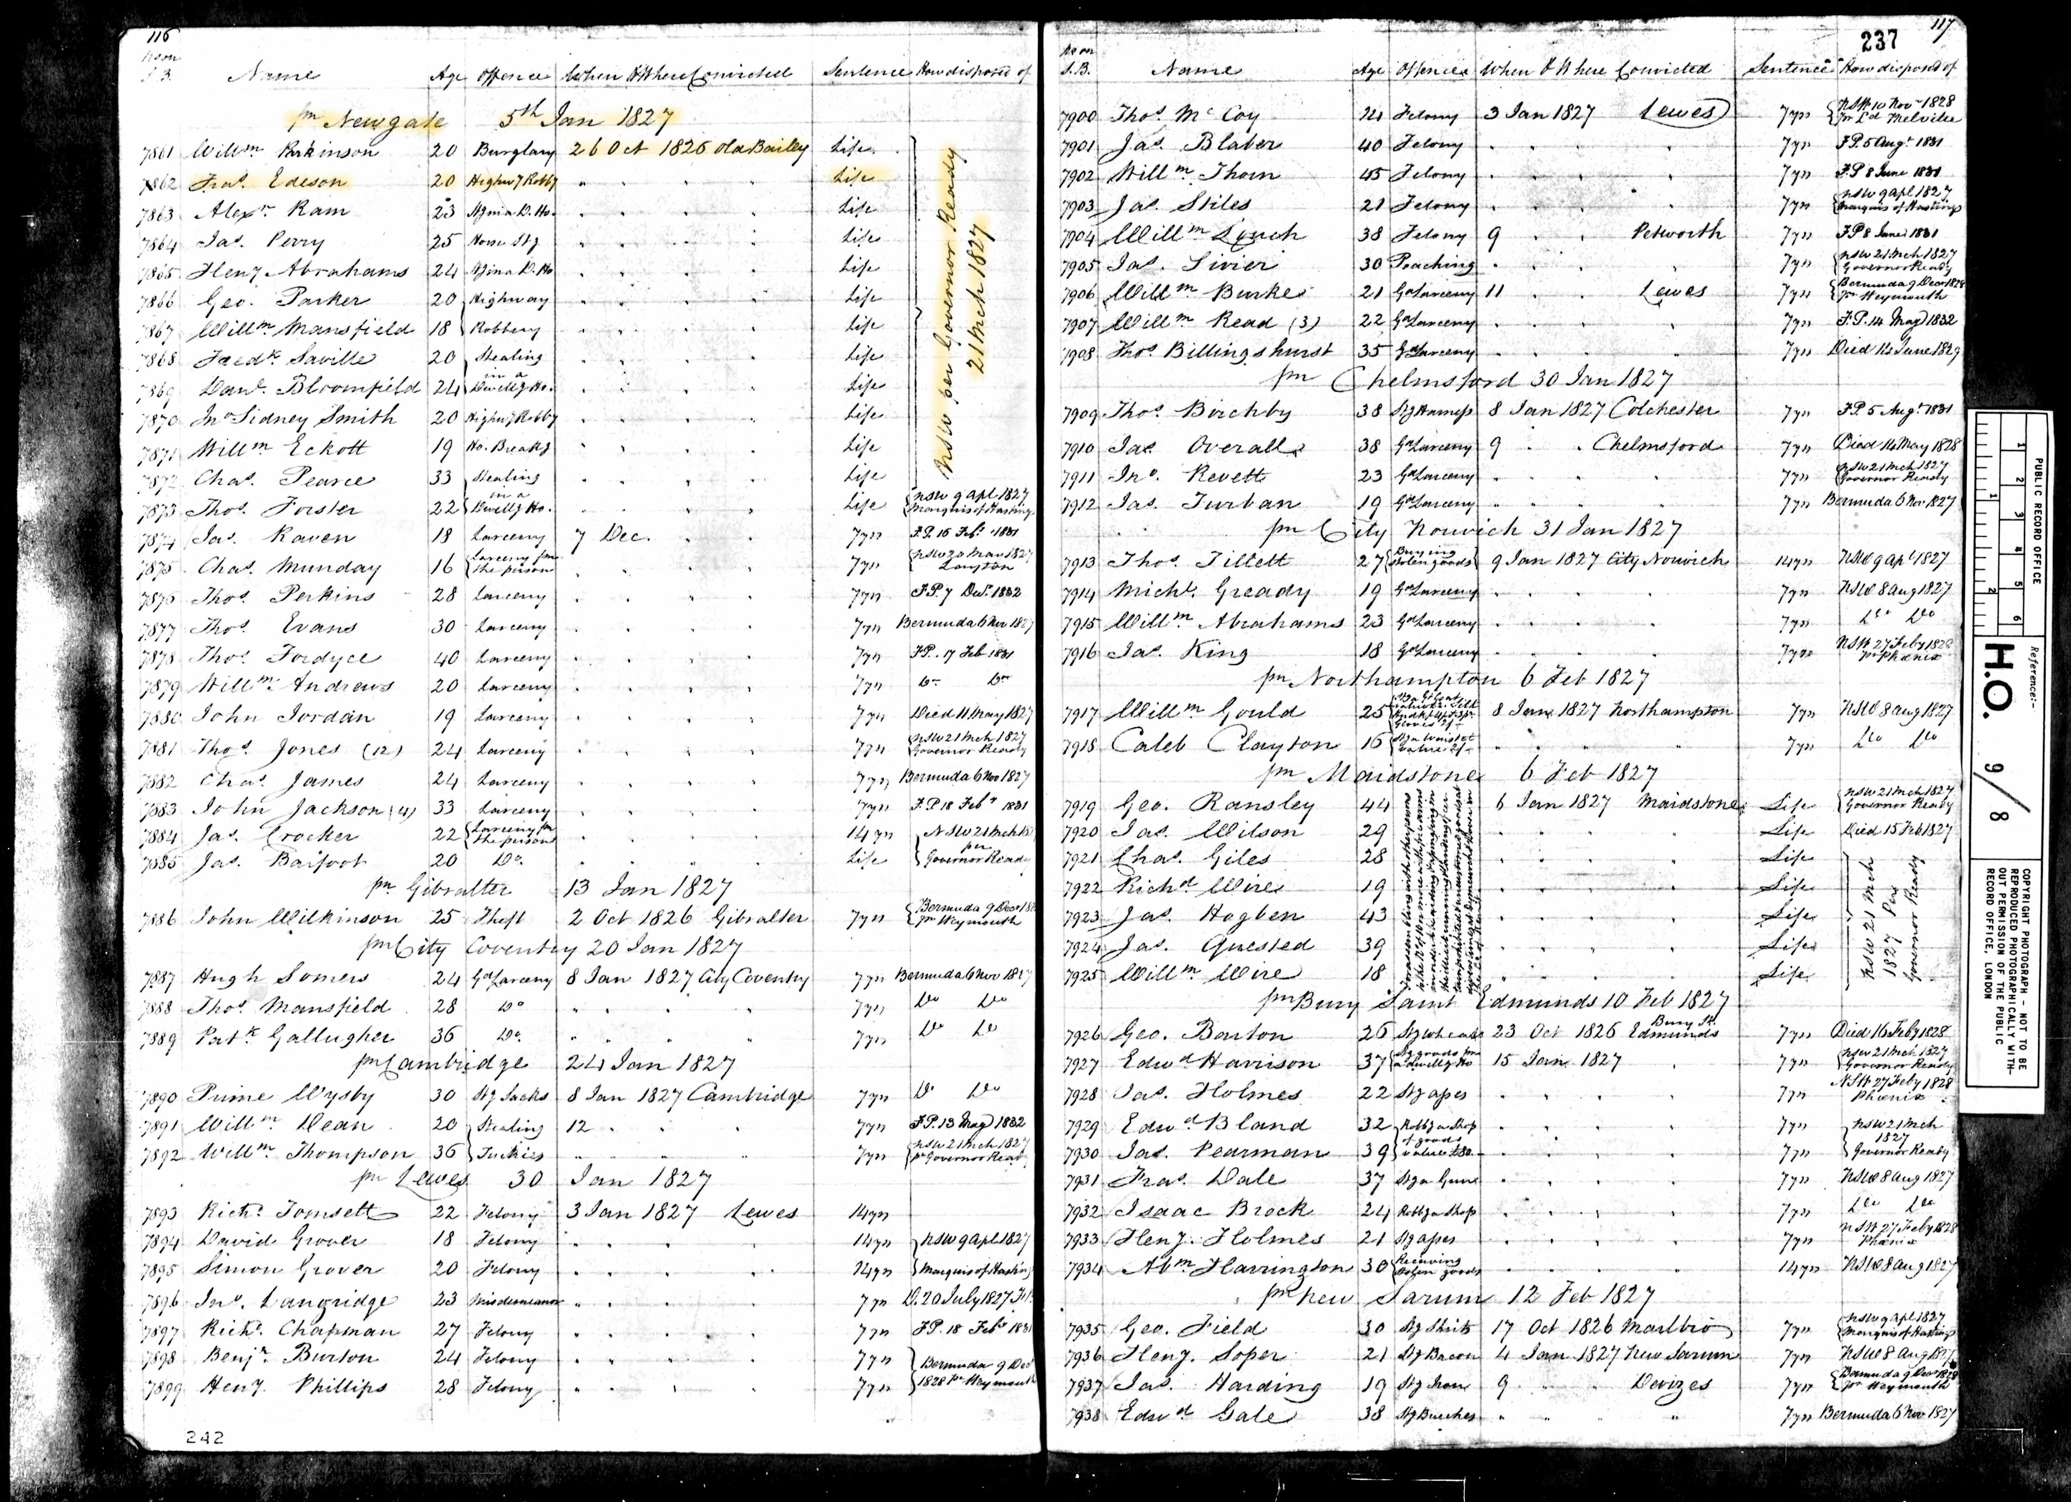 116
Name Age Offence When & Where Convicted Sentence How disposed of
fm Newgate 5th Jan 1827
7861 Willm Parkinson 20 Burglary 26 Oct 1826 Old Bailey Life
7862 Fras. Edeson 20 Highwy Robby " " " Life
7863 Alexr Ram 23 Life
7864 Jas. Perry 25 Horse Stg Life
7865 Heny Abrahams 24 Life
7866 Geo. Parker 20 Highway Life
7867 Willm Mansfield 18 Robbery Life
7868 Fredk Saville 20 Stealing Life
7869 Danl Bloomfield 24 in a Dwellg Ho. Life
7870 Jno Sidney Smith 20 Highwy Robby Life
7871 Willm Eckott 19 Ho. Breakg Life
7872 Chas. Pearce 33 Stealing Life
NSW per Governor Ready
21 Mch 1827
7873 Thos. Forster 22 in a Dwellg Ho. Life NSW 9 Apl 1827 Marquis of Hastings
7874 Jas. Raven 18 Larceny 7 Dec. 7 yrs
7875 Chas. Munday 16 Larceny fm the person 7 yrs Layton
7876 Thos. Perkins 28 Larceny 7 yrs F.P. 7 Decr 1832
7877 Thos. Evans 30 Larceny 7 yrs Bermuda 6 Nov 1827
7878 Thos. Fordyce 40 Larceny 7 yrs F.P. 17 Feb 1831
7879 Willm Andrews 20 Larceny 7 yrs Do Do
7880 John Jordan 19 Larceny 7 yrs Died 11 May 1827
7881 Thos. Jones (12) 24 Larceny 7 yrs NSW 21 Mch 1827 Governor Ready
7882 Chas. James 24 Larceny 7 yrs Bermuda 6 Nov 1827
7883 John Jackson (4) 33 Larceny 7 yrs F.P. 18 Feby 1831
7884 Jas. Crocker 22 Larceny fm the person 14 yrs NSW 21 Mch
7885 Jas. Barfoot 20 Do. Life per Governor Ready
fm Gibralter 13 Jan 1827
7886 John Wilkinson 25 Theft 2 Oct 1826 Gibralter 7 yrs Bermuda 9 Decr pr Weymouth
fm City Coventry 20 Jan 1827
7887 Hugh Somers 24 Gd Larceny 8 Jan 1827 City Coventry 7 yrs Bermuda 6 Nov 1827
7888 Thos. Mansfield 28 Do 7 yrs Do Do
7889 Patk Gallugher 36 Do. 7 yrs Do Do
fm Cambridge 24 Jan 1827
7890 Prime Wysby 30 Stg Sacks 8 Jan 1827 Cambridge 7 yrs Do Do
7891 Willm Dean 20 Stealing 12 7 yrs F.P. 13 May 1832
7892 Willm Thompson 36 Turkies 7 yrs NSW 21 Mch 1827 pr Governor Ready
fm Lewes 30 Jan 1827
7893 Richd Tomsett 22 Felony 3 Jan 1827 Lewes 14 yrs
7894 David Grover 18 Felony 14 yrs NSW 9 Apl 1827
7895 Simon Grover 20 Felony 14 yrs Marquis of Hastings
7896 Jno. Langridge 23 Misdemeanor 7 yrs D. 20 July 1827
7897 Richd. Chapman 27 Felony 7 yrs F.P. 18 Feby 1831
7898 Benjn Burton 24 Felony 7 yrs Bermuda 9 Dec
7899 Heny. Phillips 28 Felony 7 yrs 1828 pr Weymouth
242
117
237
Name Age Offence When & Where Convicted Sentence How disposed of
7900 Thos. Mc Coy 21 Felony 3 Jan 1827 Lewes 7 yrs NSW 10 Nov 1828 pr Ld Melville
7901 Jas. Blaber 40 Felony 7 yrs F.P. 5 Augt 1831
7902 Willm Thorn 45 Felony 7 yrs F.P. 8 June 1831
7903 Jas. Stiles 21 Felony 7 yrs NSW 9 Apl 1827 Marquis of Hastings
7904 Willm Lynch 38 Felony 9 Petworth 7 yrs F.P. 8 June 1831
7905 Jas. Sivier 30 Poaching 7 yrs NSW 21 Mch 1827 Governor Ready
7906 Willm Burke 21 Gd Larceny 11 Lewes 7 yrs Bermuda 9 Decr 1828 pr Weymouth
7907 Willm Read (3) 22 Gd Larceny 7 yrs F.P. 14 May 1832
7908 Thos. Billingshurst 35 Gd Larceny 7 yrs Died 14 June 1829
fm Chelmsford 30 Jan 1827
7909 Thos. Birchby 38 Stg Harness 8 Jan 1827 Colchester 7 yrs F.P. 5 Augt 1831
7910 Jas. Overall 38 Gd Larceny 9 Chelmsford 7 yrs Died 14 May 1828
7911 Jno. Revett 23 Gd Larceny 7 yrs NSW 21 Mch 1827 Governor Ready
7912 Jas. Turban 19 Gd Larceny 7 yrs Bermuda 6 Nov 1827
fm City Norwich 31 Jan 1827
7913 Thos. Tillett 27 Buying stolen goods 9 Jan 1827 City Norwich 14 yrs NSW 9 Apl 1827
7914 Michl. Gready 19 Gd Larceny 7 yrs NSW 8 Aug 1827
7915 Willm Abrahams 23 Gd Larceny 7 yrs Do Do
7916 Jas. King 18 Gd Larceny 7 yrs NSW 27 Feby 1828 pr Phœnix
fm Northampton 6 Feb 1827
7917 Willm Gould 25 8 Jan 1827 Northampton 7 yrs NSW 8 Aug 1827
7918 Caleb Clayton 16 7 yrs Do Do
fm Maidstone 6 Feb 1827
7919 Geo. Ransley 44 6 Jan 1827 Maidstone Life NSW 21 Mch 1827 Governor Ready
7920 Jas. Wilson 29 Life Died 15 Feb 1827
7921 Chas. Giles 28 Life
7922 Richd Wire 19 Life
7923 Jas. Hogben 43 Life
7924 Jas. Quested 39 Life
7925 Willm Wire 18 Life
NSW 21 Mch
1827 Per
Governor Ready
fm Bury Saint Edmunds 10 Feb 1827
7926 Geo. Barton 26 23 Oct 1826 Bury St. Edmunds 7 yrs Died 16 Feby 1828
7927 Edwd Harrison 37 Stg goods fm a dwellg Ho 15 Jan 1827 7 yrs NSW 21 Mch 1827 Governor Ready
7928 Jas. Holmes 22 7 yrs NSW 27 Feby 1828 Phœnix
7929 Edwd Bland 32 Robbg a Shop 7 yrs NSW 21 Mch
7930 Jas. Pearman 39 of goods value 7 yrs 1827 Governor Ready
7931 Fras. Dale 37 Stg a Gun 7 yrs NSW 8 Aug 1827
7932 Isaac Brock 24 Robbg a Shop 7 yrs Do Do
7933 Heny. Holmes 21 7 yrs NSW 27 Feby 1828 Phœnix
7934 Abm Harrington 30 Receiving stolen goods 14 yrs NSW 8 Aug 1827
fm New Sarum 12 Feb 1827
7935 Geo. Field 30 Stg Shirts 17 Oct 1826 Marlbro 7 yrs NSW 9 Apl 1827 Marquis of Hastings
7936 Heny. Soper 21 Stg Bacon 4 Jan 1827 New Sarum 7 yrs NSW 8 Aug 1827
7937 Jas. Harding 19 Stg Iron 9 Devizes 7 yrs Bermuda 9 Decr 1828 pr Weymouth
7938 Edwd Gale 38 Stg Breeches 7 yrs Bermuda 6 Nov 1827
PUBLIC RECORD OFFICE
1 2 3 4 5 6
1 2
Reference:-
H.O. 9/8
COPYRIGHT PHOTOGRAPH - NOT TO BE
REPRODUCED PHOTOGRAPHICALLY WITH-
OUT PERMISSION OF THE PUBLIC
RECORD OFFICE, LONDON